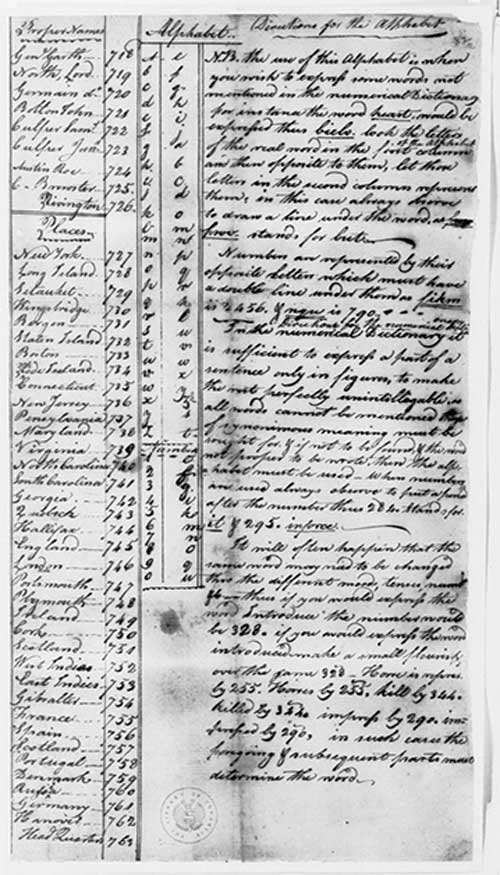 Proper Names
Gen Garth 718
North Lord 719
Germain do. 720
Bolton John 721
Culper Saml. 722
Culper Junr. 723
Austin Roe 724
C. Brewster 725
Rivington 726
Places
New York 727
Long Island 728
Setauket 729
Kingsbridge 730
Bergen 731
Staten Island 732
Boston 733
Rode Island 734
Connecticut 735
New Jersey 736
Pensylvania 737
Maryland 738
Virginia 739
North Carolina 740
South Carolina 741
Georgia 742
Quebeck 743
Hallifax 744
England 745
London 746
Portsmouth 747
Plymouth 748
Ireland 749
Corke 750
Scotland 751
West Indias 752
East Indies 753
Gibralter 754
France 755
Spain 756
Scotland 757
Portugal 758
Denmark 759
Russia 760
Germany 761
Hanover 762
Head Quarters 763
Alphabet
a e
b f
c g
d h
e i
f j
g a
h b
i c
j d
k o
l m
m n
n p
o q
p r
q k
r l
s u
t v
u w
v x
w y
x z
y s
z t
Directions for the Alphabet
N.B. the use of this Alphabet is when
you wish to express some words not
mentioned in the numerical Dictionary
for instance the word heart, would be
expressed thus biels. look the letters
of the real word in the first column
of the Alphabet
and then opposite to them, let those
letters in the second column represent
them, in this case always observe
to draw a line under the word, as
stands for but
Numbers are represented by their
opposite letters which must have
a double line under them as fikm
is 2456. & nque is 790.
Directions for the numerical
In the numerical Dictionary it
is sufficient to express a part of a
sentence only in figures, to make
the rest perfectly unintelligable, as
all words cannot be mentioned
of synonimous meaning must be
sought for, & if not to be found, & the word
not proper to be wrote, then the alp-
habet must be used — when numbers
are used always observe to put a period
after the number thus 284. stands for
it & 295. inforce
It will often happen that the
same word may need to be changed
thro the different moods, tenses, numbers
thus if you would express the
word Introduce the number would
be 328. if you would express the word
introduced make a small flourish
over the same 328 — Horse is repres.
by 255. Horses by 255. kill by 344.
killed by 344. impress by 290. im-
pressed by 290, in such cases the
foregoing & subsequent parts must
determine the word.